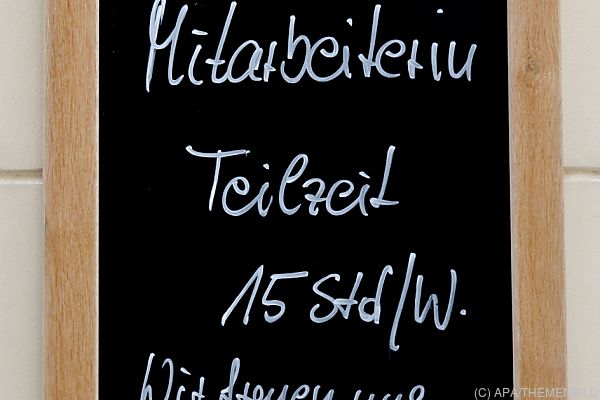 Mitarbeiterin
Teilzeit
15 Std/W.
Wir freuen uns
(C) APA/THEMENBILD